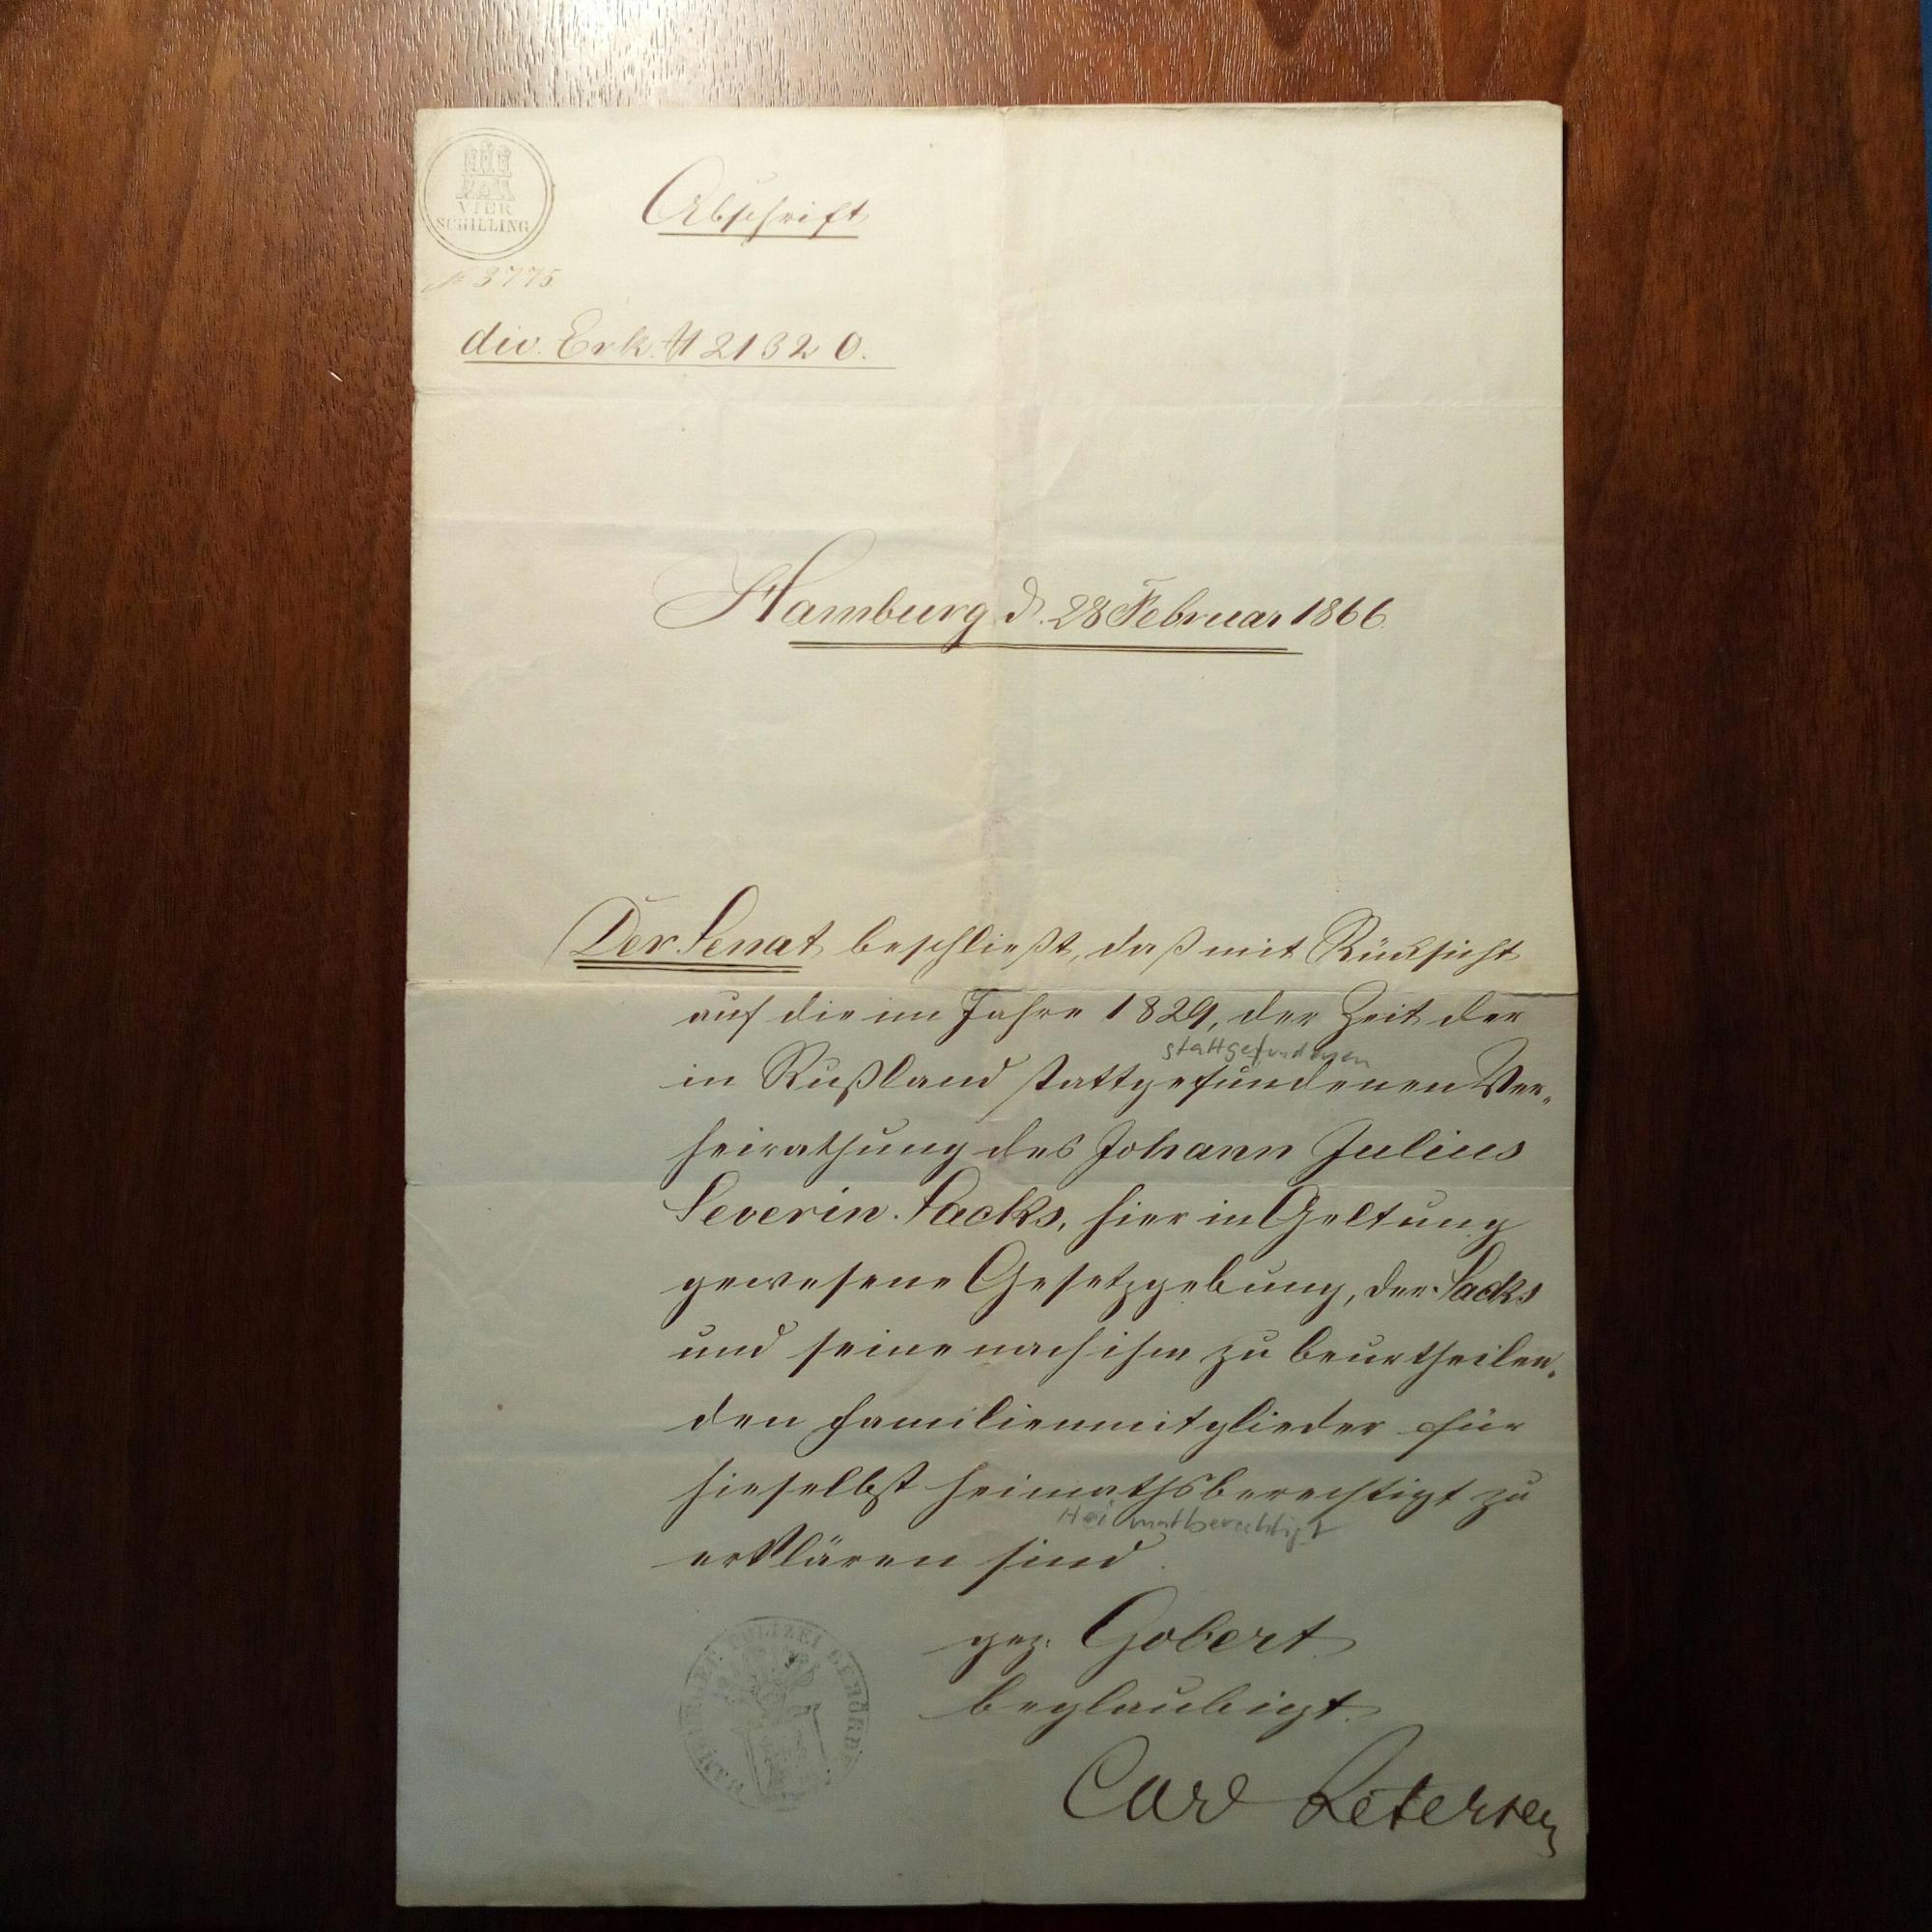 VIER
SCHILLING
Abschrift
3775
div. Erk. № 21320.
Hamburg d. 28 Februar 1866.
Der Senat beschließt, daß mit Rücksicht
auf die im Jahre 1829, der Zeit der
stattgefundenen
in Rußland stattgefundenen Ver-
heirathung des Johann Julius
Severin Sacks, hier in Geltung
gewesene Gesetzgebung, der Sacks
und seine nach ihm zu beurtheilen-
den Familienmitglieder für
hieselbst heimathsberechtigt zu
Heimatberechtigt
erklären sind.
gez. Gobert.
beglaubigt.
HAMBURGER POLIZEI BEHÖRDE
Carl Petersen